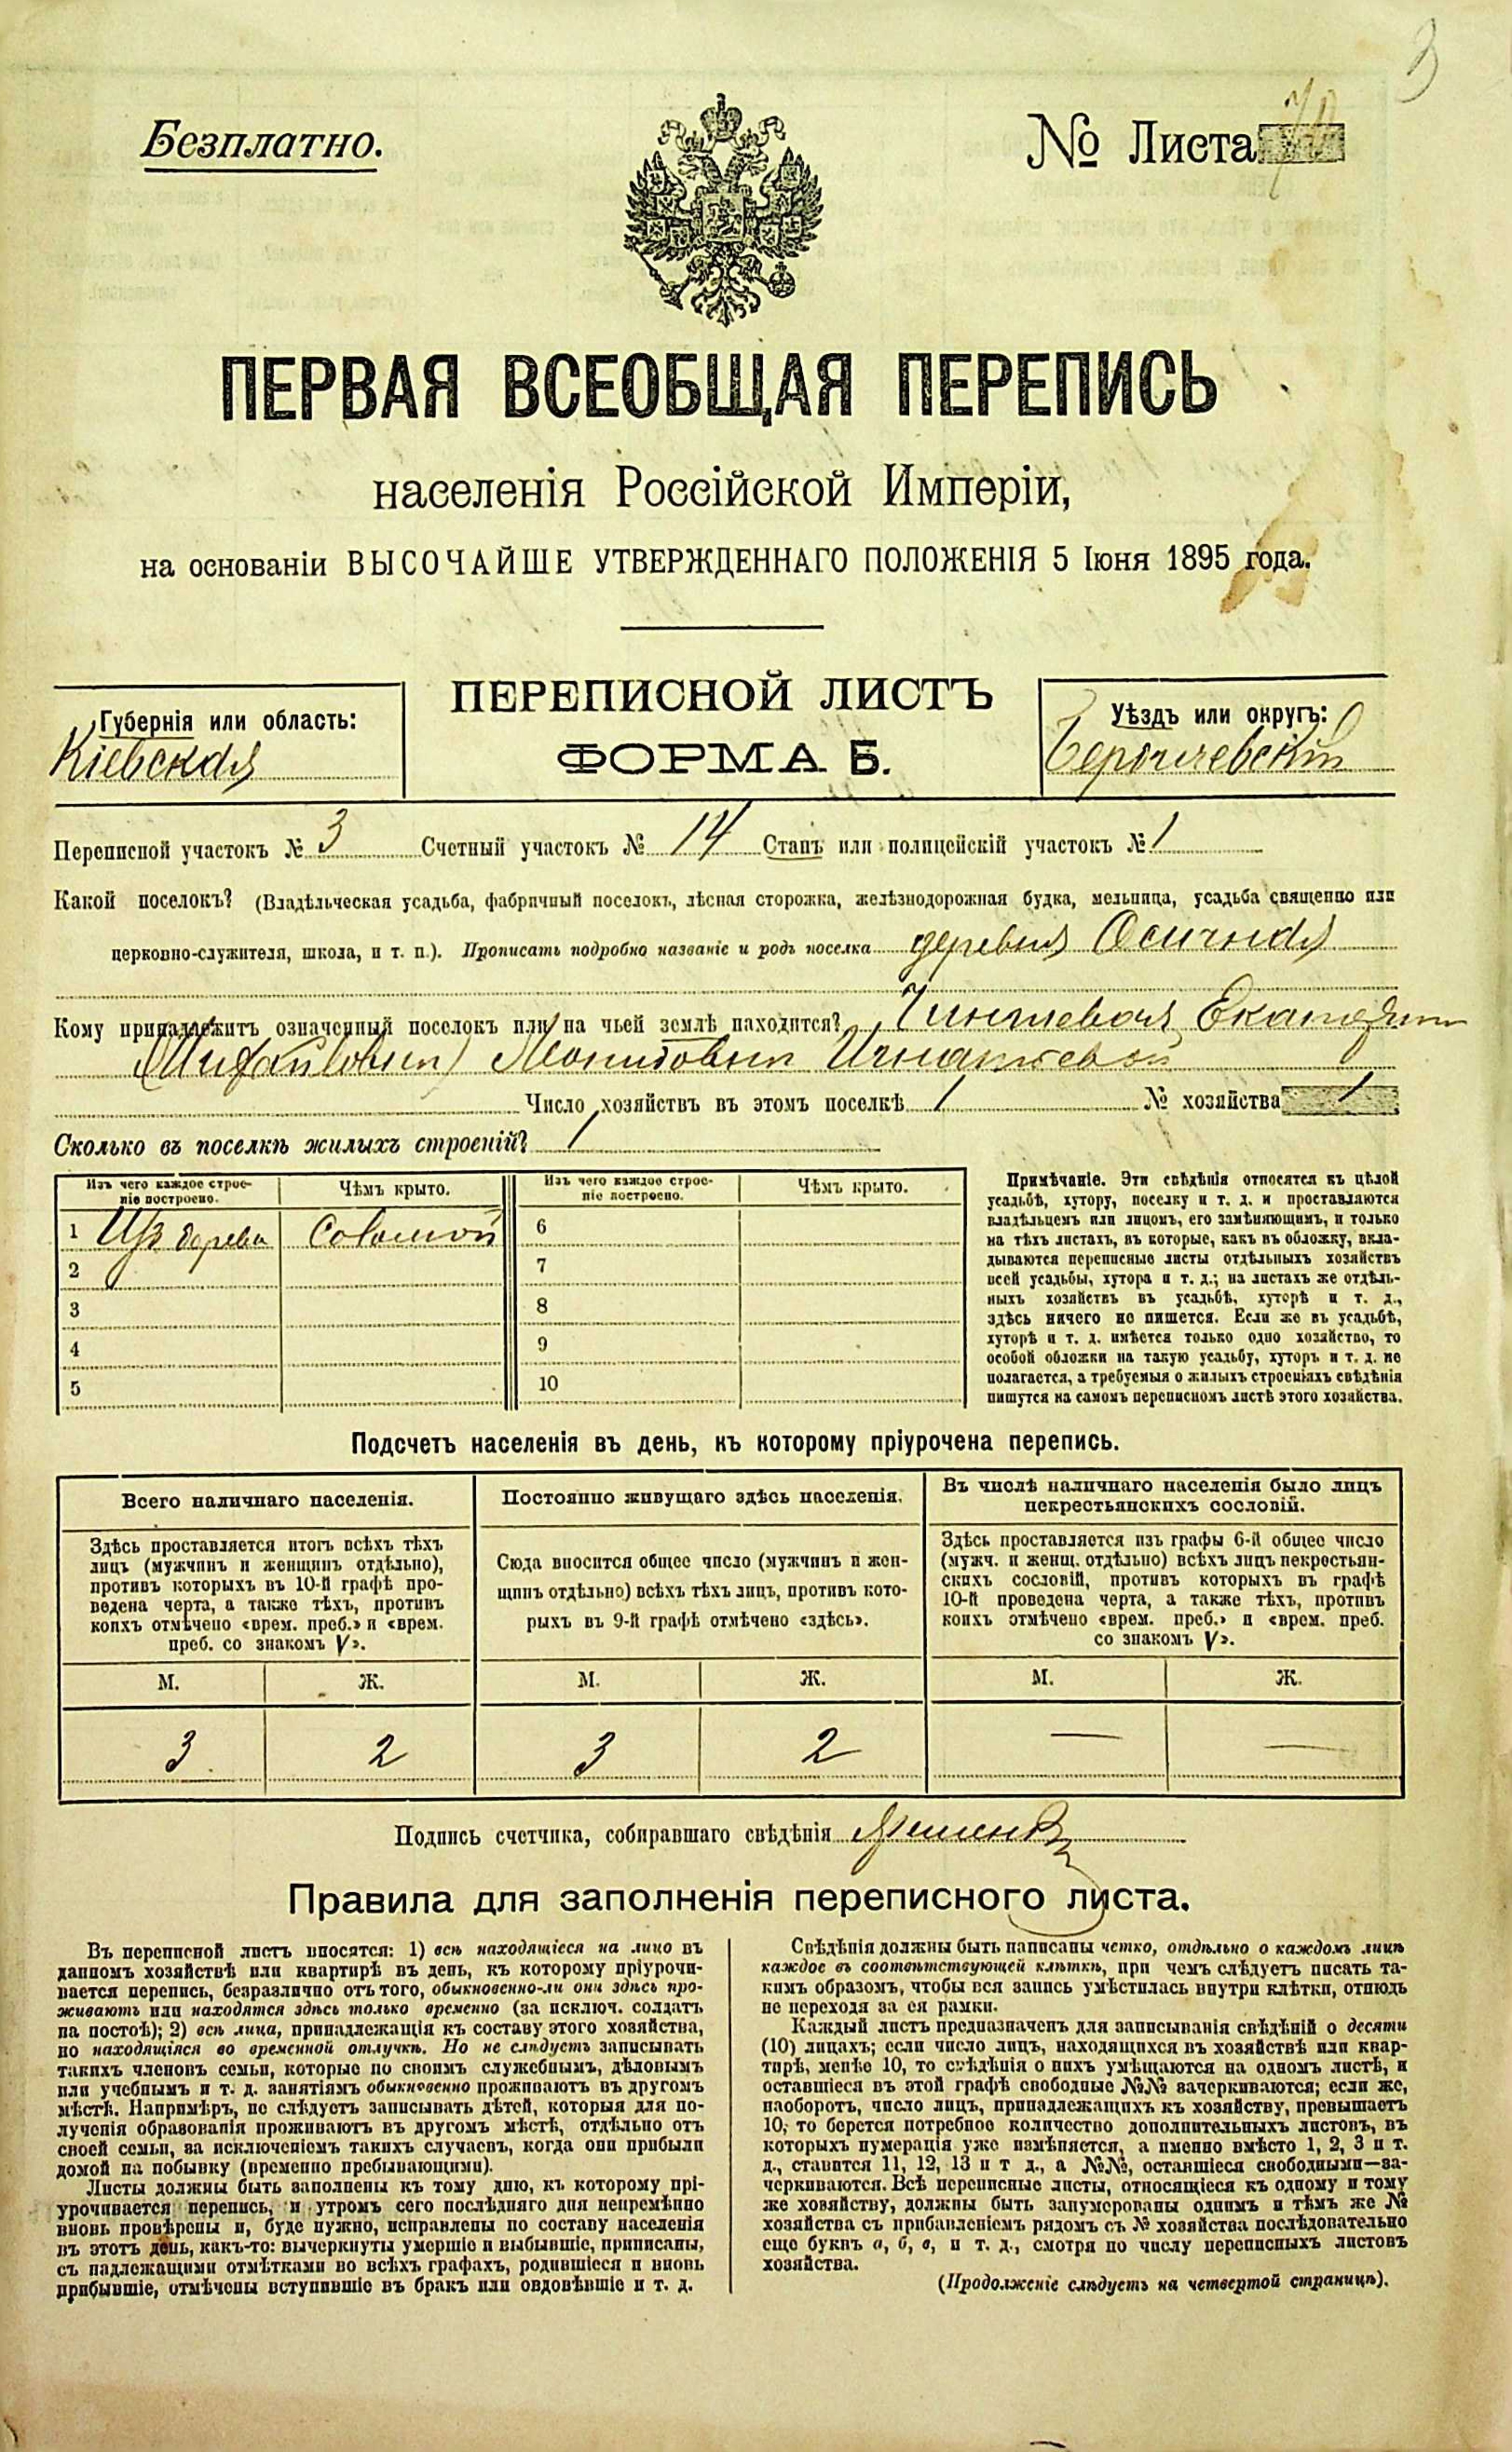 3
Безплатно.
№ Листа
ПЕРВАЯ ВСЕОБЩАЯ ПЕРЕПИСЬ
населенія Россійской Имперіи,
на основаніи ВЫСОЧАЙШЕ УТВЕРЖДЕННАГО ПОЛОЖЕНІЯ 5 Іюня 1895 года.
ПЕРЕПИСНОЙ ЛИСТЪ
ФОРМА Б.
Губернія или область:
Кіевская
Уѣздъ или округъ:
Бердичевскій
Переписной участокъ № 3 Счетный участокъ № 14 Станъ или полицейскій участокъ № 1
Какой поселокъ? (Владѣльческая усадьба, фабричный поселокъ, лѣсная сторожка, желѣзнодорожная будка, мельница, усадьба священно или
церковно-служителя, школа, и т. п.). Прописать подробно названіе и родъ поселка деревня Осична
Кому принадлежитъ означенный поселокъ или на чьей землѣ находится? Екатерины
Игнатьевой
Число хозяйствъ въ этомъ поселкѣ 1 № хозяйства 1
Сколько въ поселкѣ жилыхъ строеній? 1
Изъ чего каждое строеніе построено. Чѣмъ крыто. Изъ чего каждое строеніе построено. Чѣмъ крыто.
1 Изъ дерева Соломой 6
2 7
3 8
4 9
5 10
Примѣчаніе. Эти свѣдѣнія относятся къ цѣлой
усадьбѣ, хутору, поселку и т. д. и проставляются
владѣльцемъ или лицомъ, его замѣняющимъ, и только
на тѣхъ листахъ, въ которые, какъ въ обложку, вкла-
дываются переписные листы отдѣльныхъ хозяйствъ
всей усадьбы, хутора и т. д.; на листахъ же отдѣль-
ныхъ хозяйствъ въ усадьбѣ, хуторѣ и т. д.,
здѣсь ничего не пишется. Если же въ усадьбѣ,
хуторѣ и т. д. имѣется только одно хозяйство, то
особой обложки на такую усадьбу, хуторъ и т. д. не
полагается, а требуемыя о жилыхъ строеніяхъ свѣдѣнія
пишутся на самомъ переписномъ листѣ этого хозяйства.
Подсчетъ населенія въ день, къ которому пріурочена перепись.
Всего наличнаго населенія.
Здѣсь проставляется итогъ всѣхъ тѣхъ
лицъ (мужчинъ и женщинъ отдѣльно),
противъ которыхъ въ 10-й графѣ про-
ведена черта, а также тѣхъ, противъ
коихъ отмѣчено «врем. преб.» и «врем.
преб. со знакомъ V».
Постоянно живущаго здѣсь населенія.
Сюда вносится общее число (мужчинъ и жен-
щинъ отдѣльно) всѣхъ тѣхъ лицъ, противъ кото-
рыхъ въ 9-й графѣ отмѣчено «здѣсь».
Въ числѣ наличнаго населенія было лицъ
некрестьянскихъ сословій.
Здѣсь проставляется изъ графы 6-й общее число
(мужч. и женщ. отдѣльно) всѣхъ лицъ некрестьян-
скихъ сословій, противъ которыхъ въ графѣ
10-й проведена черта, а также тѣхъ, противъ
коихъ отмѣчено «врем. преб.» и «врем. преб.
со знакомъ V».
М. Ж. М. Ж. М. Ж.
3 2 3 2 — —
Подпись счетчика, собиравшаго свѣдѣнія
Правила для заполненія переписного листа.
Въ переписной листъ вносятся: 1) всѣ находящіеся на лицо въ
данномъ хозяйствѣ или квартирѣ въ день, къ которому пріурочи-
вается перепись, безразлично отъ того, обыкновенно-ли они здѣсь про-
живаютъ или находятся здѣсь только временно (за исключ. солдатъ
на постоѣ); 2) всѣ лица, принадлежащія къ составу этого хозяйства,
но находящіяся во временной отлучкѣ. Но не слѣдуетъ записывать
такихъ членовъ семьи, которые по своимъ служебнымъ, дѣловымъ
или учебнымъ и т. д. занятіямъ обыкновенно проживаютъ въ другомъ
мѣстѣ. Напримѣръ, не слѣдуетъ записывать дѣтей, которыя для по-
лученія образованія проживаютъ въ другомъ мѣстѣ, отдѣльно отъ
своей семьи, за исключеніемъ такихъ случаевъ, когда они прибыли
домой на побывку (временно пребывающими).
Листы должны быть заполнены къ тому дню, къ которому прі-
урочивается перепись, и утромъ сего послѣдняго дня непремѣнно
вновь провѣрены и, буде нужно, исправлены по составу населенія
въ этотъ день, какъ-то: вычеркнуты умершіе и выбывшіе, приписаны,
съ надлежащими отмѣтками во всѣхъ графахъ, родившіеся и вновь
прибывшіе, отмѣчены вступившіе въ бракъ или овдовѣвшіе и т. д.
Свѣдѣнія должны быть написаны четко, отдѣльно о каждомъ лицѣ
каждое въ соотвѣтствующей клѣткѣ, при чемъ слѣдуетъ писать та-
кимъ образомъ, чтобы вся запись умѣстилась внутри клѣтки, отнюдь
не переходя за ея рамки.
Каждый листъ предназначенъ для записыванія свѣдѣній о десяти
(10) лицахъ; если число лицъ, находящихся въ хозяйствѣ или квар-
тирѣ, менѣе 10, то свѣдѣнія о нихъ умѣщаются на одномъ листѣ, и
оставшіеся въ этой графѣ свободные №№ зачеркиваются; если же,
наоборотъ, число лицъ, принадлежащихъ къ хозяйству, превышаетъ
10, то берется потребное количество дополнительныхъ листовъ, въ
которыхъ нумерація уже измѣняется, а именно вмѣсто 1, 2, 3 и т.
д., ставится 11, 12, 13 и т д., а №№, оставшіеся свободными—за-
черкиваются. Всѣ переписные листы, относящіеся къ одному и тому
же хозяйству, должны быть занумерованы однимъ и тѣмъ же №
хозяйства съ прибавленіемъ рядомъ съ № хозяйства послѣдовательно
еще буквъ а, б, в, и т. д., смотря по числу переписныхъ листовъ
хозяйства.
(Продолженіе слѣдуетъ на четвертой страницѣ).